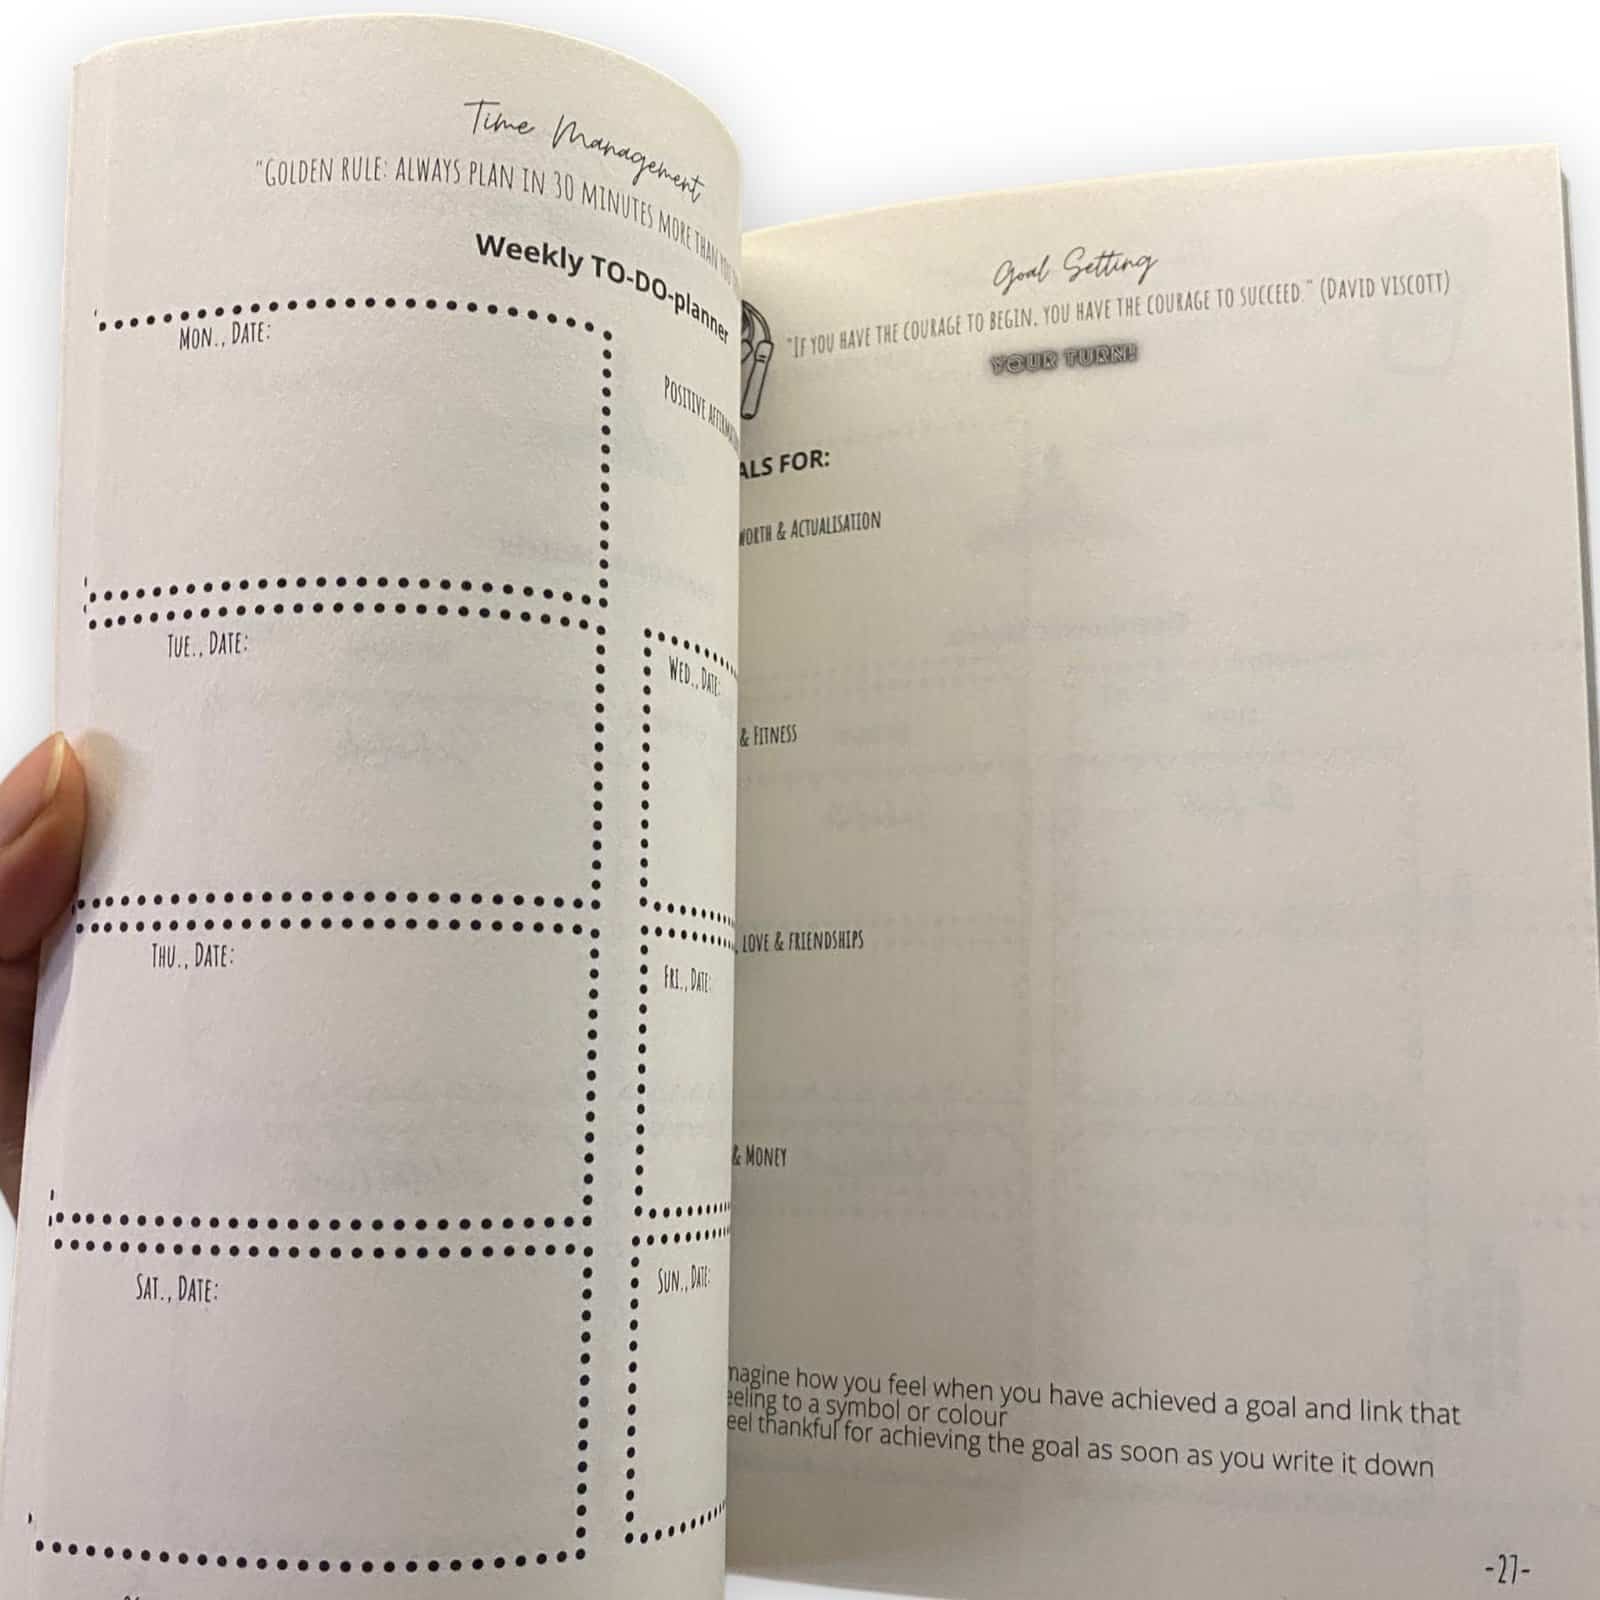 Time Management
"Golden rule: always plan in 30 minutes more than
Weekly TO-DO-planner
Mon., Date:
Positive
Tue., Date:
Wed., Date:
Thu., Date:
Fri., Date:
Sat., Date:
Sun., Date:
Goal Setting
"If you have the courage to begin, you have the courage to succeed." (David Viscott)
YOUR TURN!
ALS FOR:
worth & Actualisation
& Fitness
, love & friendships
& Money
magine how you feel when you have achieved a goal and link that
eeling to a symbol or colour
eel thankful for achieving the goal as soon as you write it down
-27-